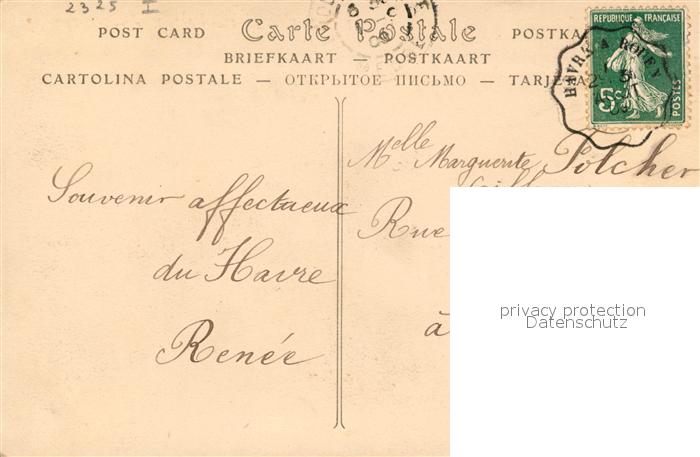 2325 I
POST CARD Carte Postale POSTKA
BRIEFKAART — POSTKAART
CARTOLINA POSTALE — ОТКРЫТОЕ ПИСЬМО — TARJETA
RÉPUBLIQUE FRANÇAISE
5c
POSTES
HAVRE A ROUEN
Melle Marguerite Potcher
Rue
à
Souvenir affectueux
du Havre
Renée
privacy protection
Datenschutz